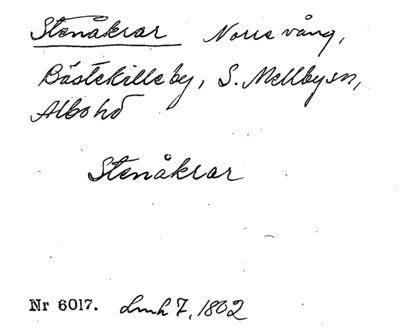 Stenåkrar Norre vång,
Bästekille by, S. Mellby sn,
Albo hd
Stenåkrar
Nr 6017. Lmh 7, 1802